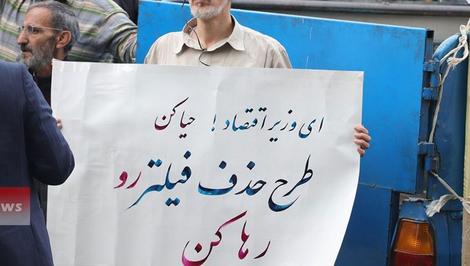 ای وزیر اقتصاد! حیا کن
طرح حذف فیلتر رو
رها کن
NEWS